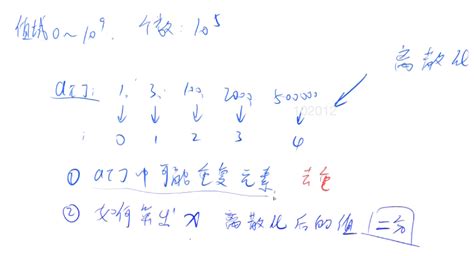 值域0~10⁹. 个数: 10⁵
离散化
a[]: 1, 3, 100, 2000, 500000
i: 0 1 2 3 4
① a[]中可能重复元素 去重
② 如何算出 x 离散化后的值 二分